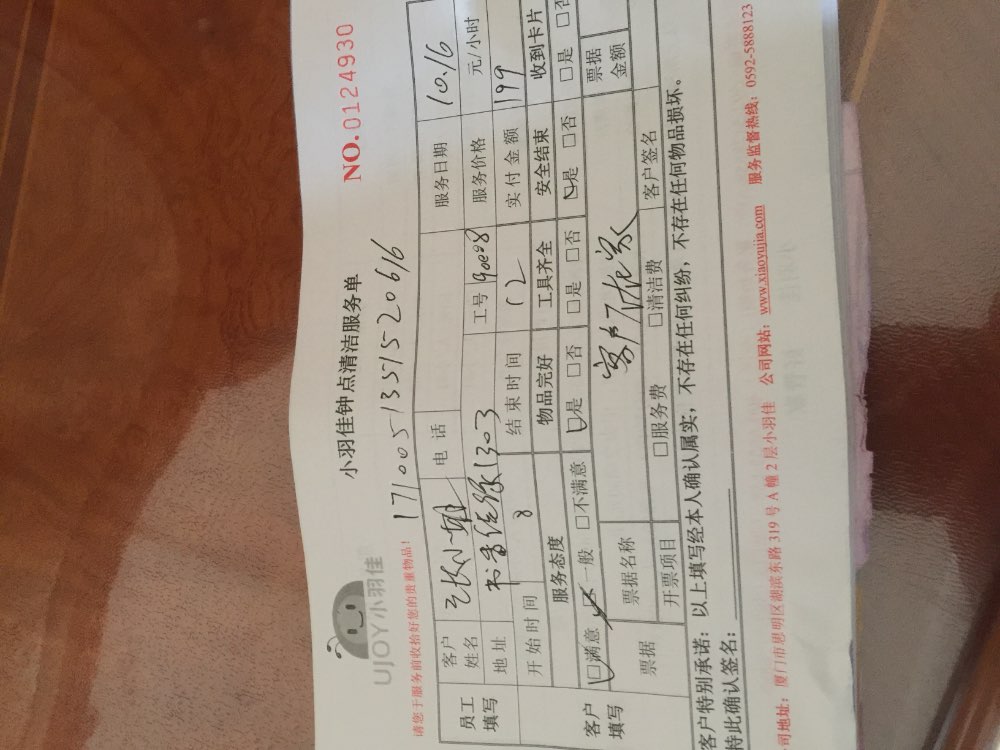 UJOY小羽佳
小羽佳钟点清洁服务单
NO.0124930
请您于服务前收拾好您的贵重物品！
171005135152061 6
员工填写
客户姓名
电话
服务日期 10.16
地址 1303
工号 90e08
服务价格 元/小时
开始时间 8
结束时间 12
实付金额 199
客户填写
服务态度 物品完好 工具齐全 安全结束 收到卡片
□满意 □一般 □不满意 □是 □否 □是 □否 □是 □否 □是 □否
票据
票据名称 客户不在家
票据金额
开票项目 □服务费 □清洁费 客户签名
客户特别承诺：以上填写经本人确认属实，不存在任何纠纷，不存在任何物品损坏。
特此确认签名：
司地址：厦门市思明区湖滨东路 319 号 A 幢 2 层小羽佳 公司网站：www.xiaoyujia.com 服务监督热线：0592-5888123